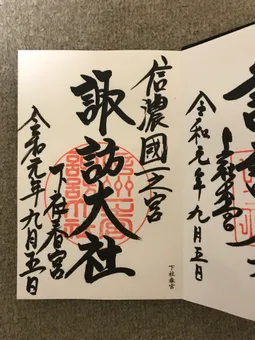 令和元年九月五日
信濃國一之宮
諏訪大社
下社春宮
令和元年九月五日
下社春宮